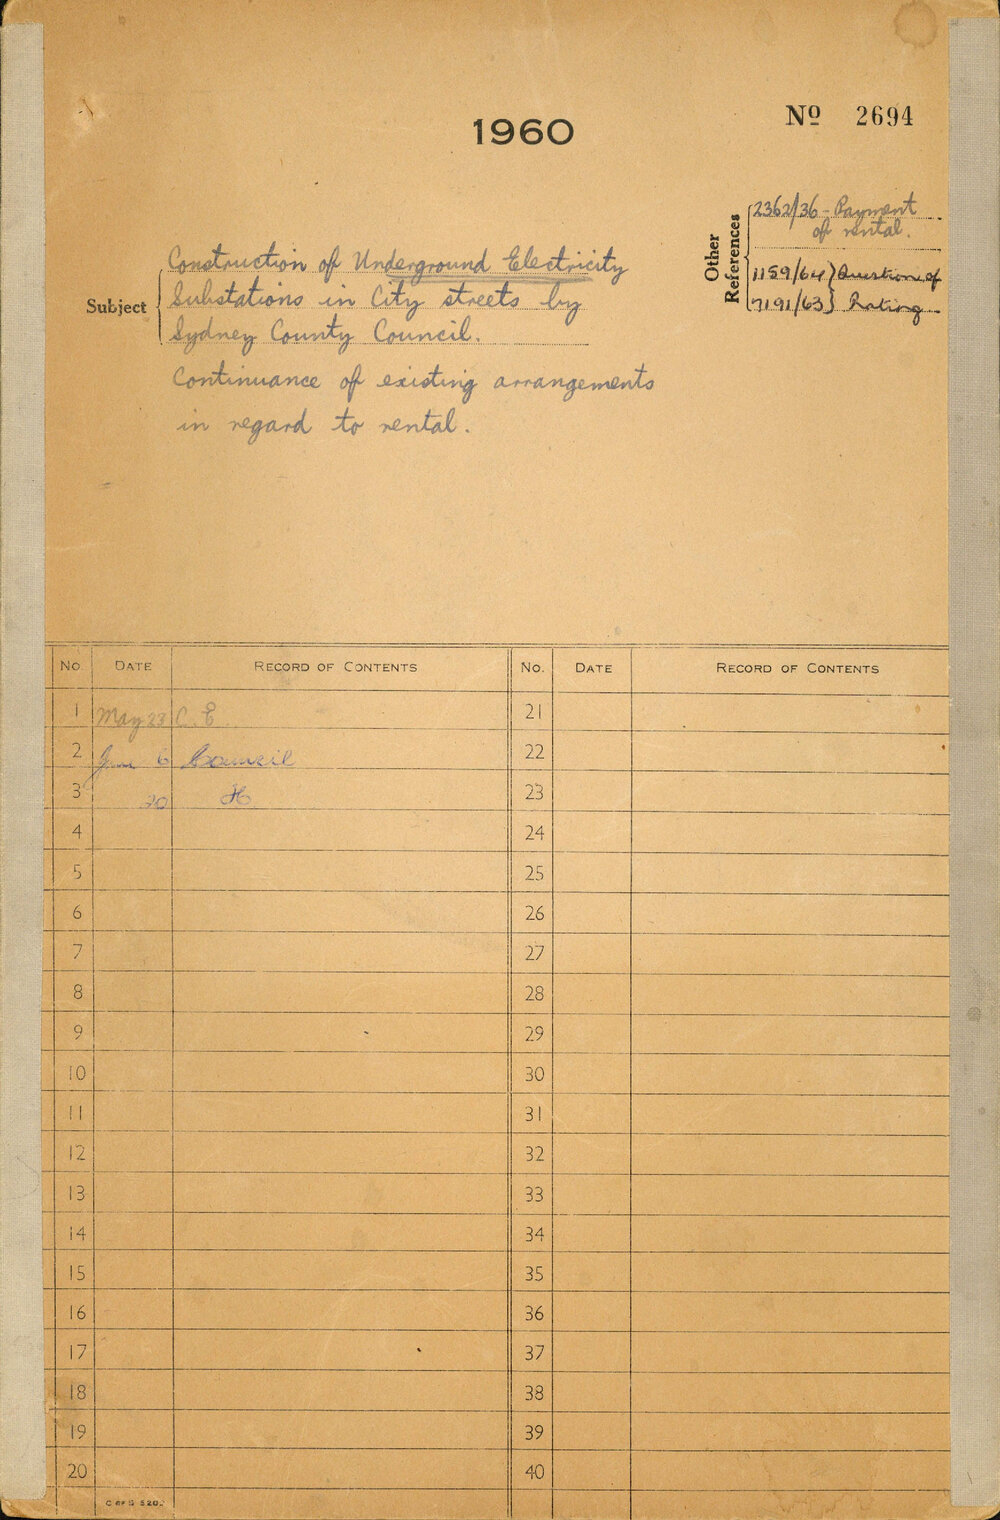 1960
Nº 2694
Other References
2362/36 - Payment
of rental.
1159/64 } Question of
7191/63 } Rating
Subject
Construction of Underground Electricity
Substations in City streets by
Sydney County Council.
Continuance of existing arrangements
in regard to rental.
No. DATE RECORD OF CONTENTS No. DATE RECORD OF CONTENTS
1 May 23 C.E 21
2 June 6 Council 22
3 20 23
4 24
5 25
6 26
7 27
8 28
9 29
10 30
11 31
12 32
13 33
14 34
15 35
16 36
17 37
18 38
19 39
20 40